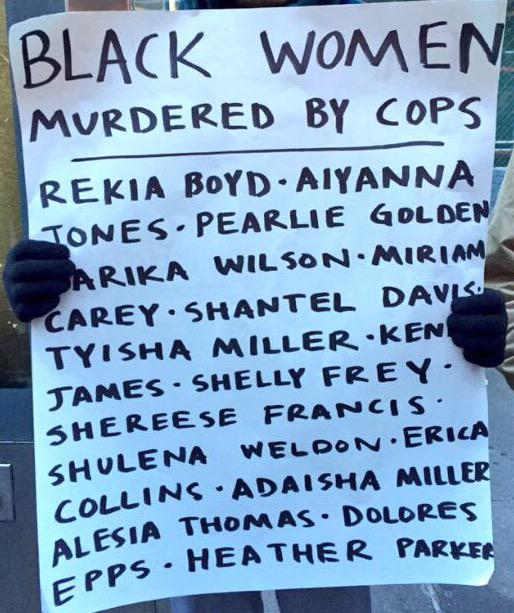 BLACK WOMEN
MURDERED BY COPS
REKIA BOYD · AIYANNA
JONES · PEARLIE GOLDEN
ARIKA WILSON · MIRIAM
CAREY · SHANTEL DAVIS ·
TYISHA MILLER · KEN
JAMES · SHELLY FREY ·
SHEREESE FRANCIS ·
SHULENA WELDON · ERICA
COLLINS · ADAISHA MILLER
ALESIA THOMAS · DOLORES
EPPS · HEATHER PARKER